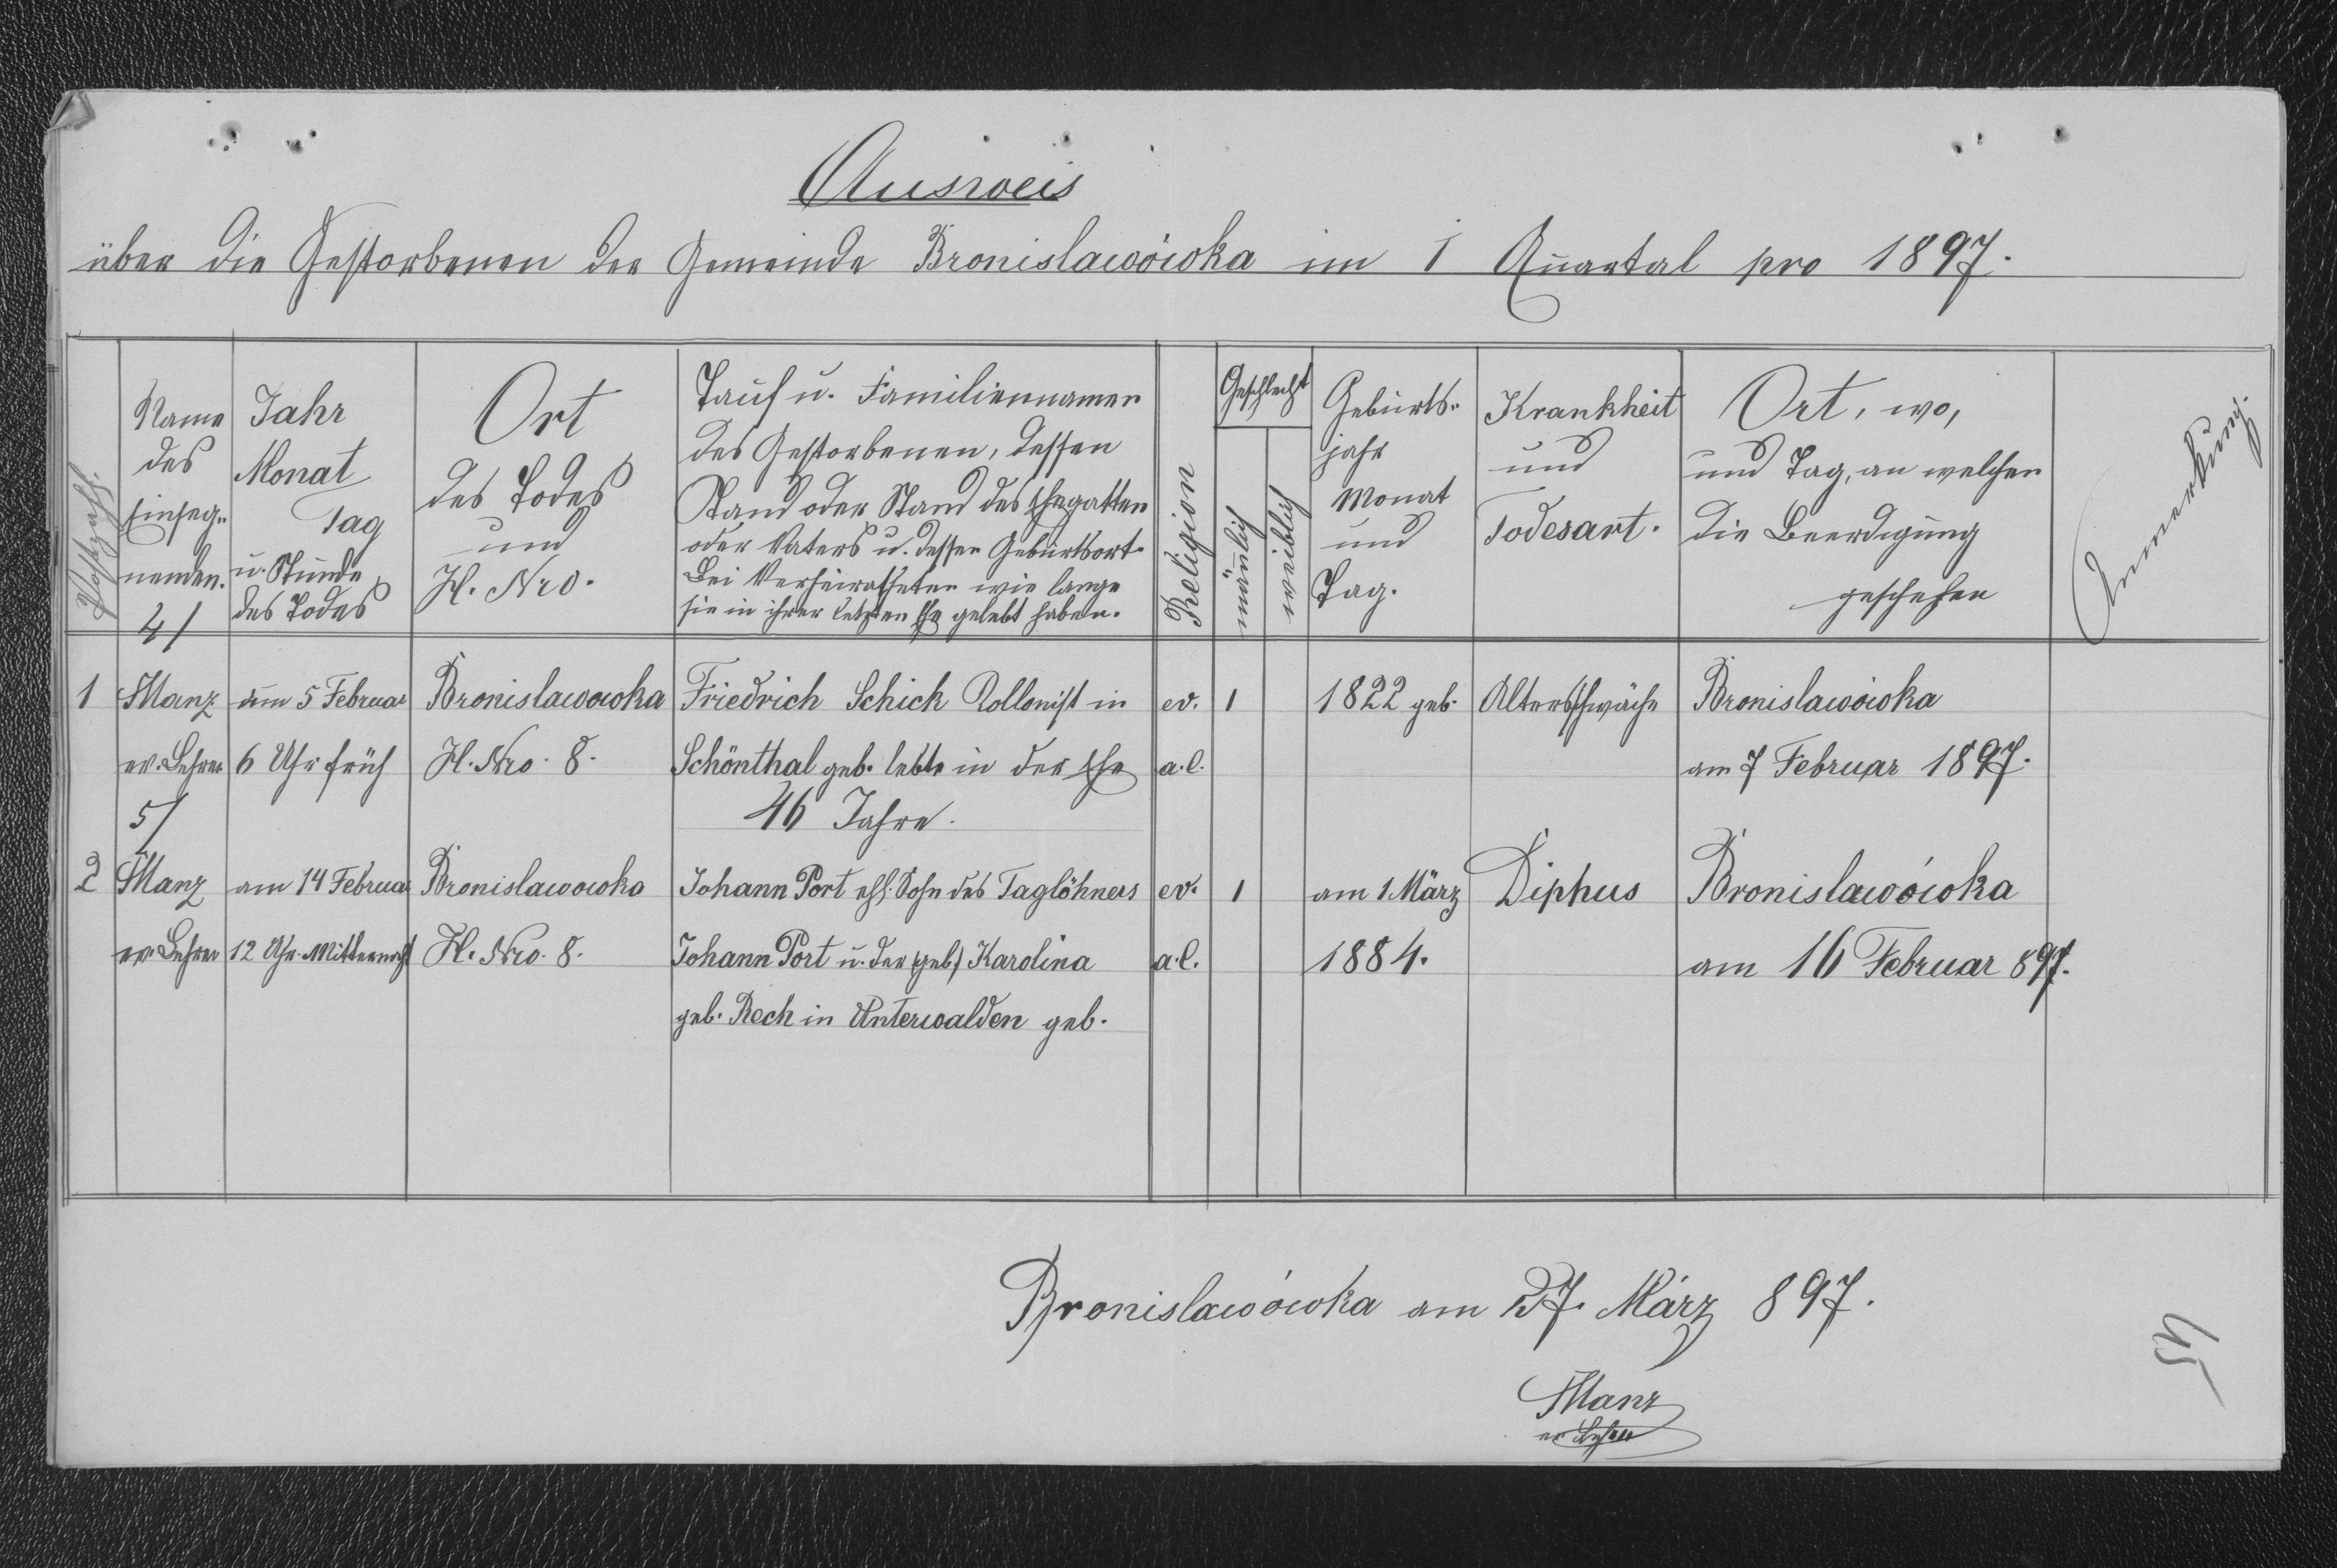 Ausweis
über die Gestorbenen der Gemeinde Bronislawówka im I Quartal pro 1897.
Postzahl.
Name
des
Einseg-
nenden.
Jahr
Monat
Tag
u. Stunde
des Todes
Ort
des Todes
und
H. Nro.
Tauf u. Familiennamen
des Gestorbenen, dessen
Stand oder Stand des Ehegatten
oder Vaters u. dessen Geburtsort.
Bei Verheiratheten wie lange
sie in ihrer letzten Ehe gelebt haben.
Religion
Geschlecht
mänlich
weiblich
Geburts-
jahr
Monat
und
Tag.
Krankheit
und
Todesart.
Ort, wo,
und Tag, an welchen
die Beerdigung
geschehen
Anmerkung.
4/
1 Manz am 5 Februar Bronislawowka Friedrich Schick Kollonist in ev. 1 1822 geb. Altersschwäche Bronislawówka
ev. Lehrer 6 Uhr früh H. Nro. 8. Schönthal geb. lebte in der Ehe a.C. am 7 Februar 1897.
46 Jahre.
5/
2 Manz am 14 Februar Bronislawowka Johann Port ehl. Sohn des Taglöhners ev. 1 am 1 März Diphus Bronislawówka
ev. Lehrer 12 Uhr Mitternacht H. Nro. 8. Johann Port u. der (geb.) Karolina a.C. 1884. am 16 Februar 897.
geb. Rech in Unterwalden geb.
Bronislawówka am 27. März 897.
Manz
ev. Lehrer
45